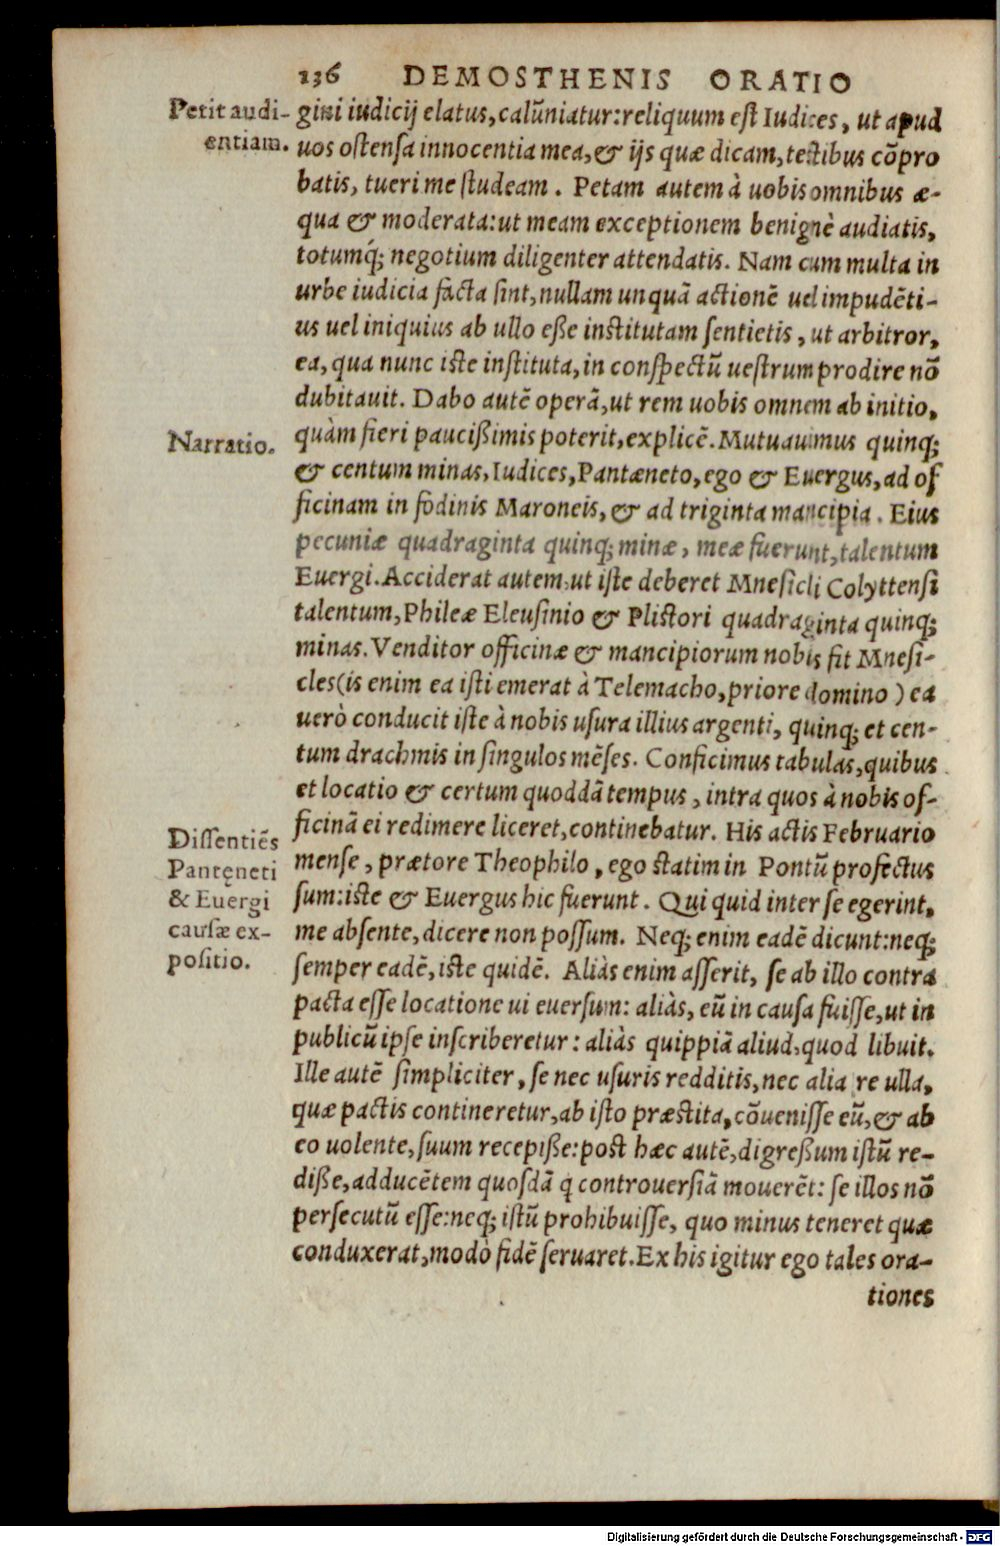 136 DEMOSTHENIS ORATIO
Petit audi-
entiam.
gini iudicij elatus, calũniatur: reliquum est Iudices, ut apud
uos ostensa innocentia mea, & ijs quæ dicam, testibus cõpro
batis, tueri me studeam. Petam autem à uobis omnibus æ-
qua & moderata: ut meam exceptionem benignè audiatis,
totumq́; negotium diligenter attendatis. Nam cum multa in
urbe iudicia facta sint, nullam unquã actionẽ uel impudẽti-
us uel iniquius ab ullo eße institutam sentietis, ut arbitror,
ea, qua nunc iste instituta, in conspectũ uestrum prodire nõ
dubitauit. Dabo autẽ operã, ut rem uobis omnem ab initio,
Narratio.
quàm fieri paucißimis poterit, explicẽ. Mutuauimus quinq;
& centum minas, Iudices, Pantæneto, ego & Euergus, ad of
ficinam in fodinis Maroneis, & ad triginta mancipia. Eius
pecuniæ quadraginta quinq; minæ, meæ fuerunt, talentum
Euergi. Acciderat autem, ut iste deberet Mnesicli Colyttensi
talentum, Phileæ Eleusinio & Plistori quadraginta quinq;
minas. Venditor officinæ & mancipiorum nobis fit Mnesi-
cles (is enim ea isti emerat à Telemacho, priore domino) ea
uerò conducit iste à nobis usura illius argenti, quinq; et cen-
tum drachmis in singulos mẽses. Conficimus tabulas, quibus
et locatio & certum quoddã tempus, intra quos à nobis of-
ficinã ei redimere liceret, continebatur. His actis Februario
Dissentiẽs
Pantęneti
& Euergi
causæ ex-
positio.
mense, prætore Theophilo, ego statim in Pontũ profectus
sum: iste & Euergus hic fuerunt. Qui quid inter se egerint,
me absente, dicere non possum. Neq; enim eadẽ dicunt: neq;
semper eadẽ, iste quidẽ. Aliàs enim asserit, se ab illo contra
pacta esse locatione ui euersum: aliàs, eũ in causa fuisse, ut in
publicũ ipse inscriberetur: aliàs quippiã aliud, quod libuit.
Ille autẽ simpliciter, se nec usuris redditis, nec alia re ulla,
quæ pactis contineretur, ab isto præstita, cõuenisse eũ, & ab
eo uolente, suum recepiße: post hæc autẽ, digreßum istũ re-
diße, adducẽtem quosdã q controuersiã mouerẽt: se illos nõ
persecutũ esse: neq; istũ prohibuisse, quo minus teneret quæ
conduxerat, modò fidẽ seruaret. Ex his igitur ego tales ora-
tiones
Digitalisierung gefördert durch die Deutsche Forschungsgemeinschaft - DFG